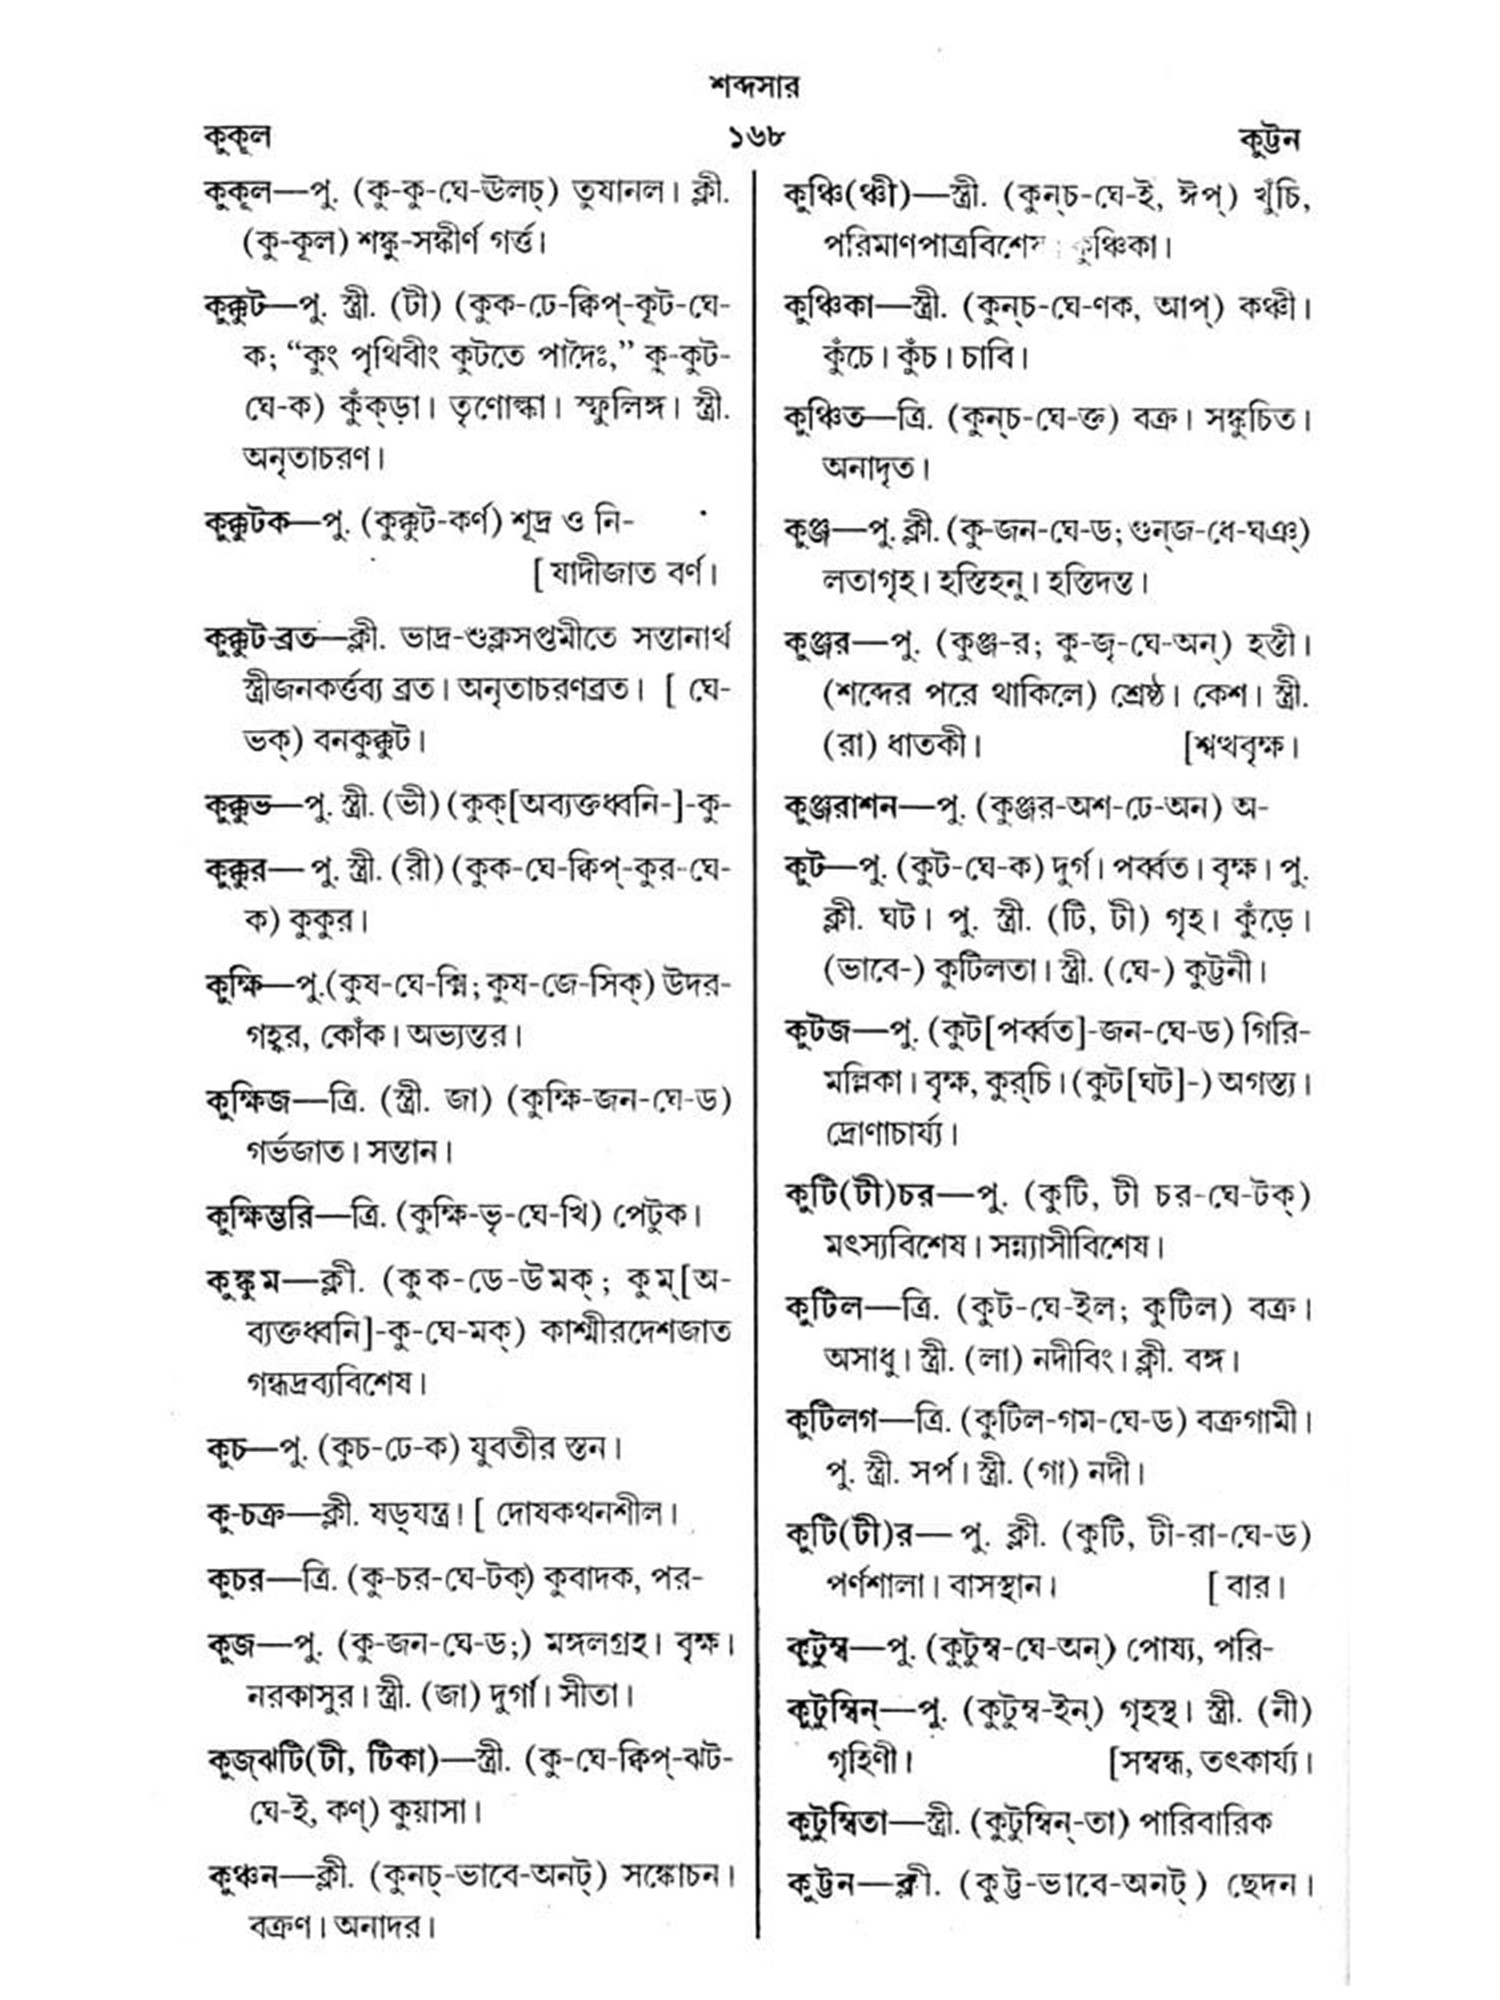 শব্দসার
কুকূল
১৬৮
কুট্টন
কুকূল—পু. (কু-কু-ঘে-ঊলচ্) তুযানল। ক্লী.
(কু-কূল) শঙ্কু-সঙ্কীর্ণ গর্ত্ত।
কুক্কুট—পু. স্ত্রী. (টী) (কুক-ঢে-ক্বিপ্-কূট-ঘে-
ক; “কুং পৃথিবীং কুটতে পাদৈঃ,” কু-কুট-
ঘে-ক) কুঁক্ড়া। তৃণোল্কা। স্ফুলিঙ্গ। স্ত্রী.
অনৃতাচরণ।
কুক্কুটক—পু. (কুক্কুট-কর্ণ) শূদ্র ও নি-
[ যাদীজাত বর্ণ।
কুক্কুট-ব্রত—ক্লী. ভাদ্র-শুক্লসপ্তমীতে সন্তানার্থ
স্ত্রীজনকর্ত্তব্য ব্রত। অনৃতাচরণব্রত। [ ঘে-
ভক্) বনকুক্কুট।
কুক্কুভ—পু. স্ত্রী. (ভী) (কুক্[অব্যক্তধ্বনি-]-কু-
কুক্কুর— পু. স্ত্রী. (রী) (কুক-ঘে-ক্বিপ্-কুর-ঘে-
ক) কুকুর।
কুক্ষি—পু.(কুষ-ঘে-ক্সি; কুয-জে-সিক্) উদর-
গহ্বর, কোঁক। অভ্যন্তর।
কুক্ষিজ—ত্রি. (স্ত্রী. জা) (কুক্ষি-জন-ঘে-ড)
গর্ভজাত। সন্তান।
কুক্ষিম্ভরি—ত্রি. (কুক্ষি-ভৃ-ঘে-খি) পেটুক।
কুঙ্কুম—ক্লী. (কুক-ডে-উমক্; কুম্[অ-
ব্যক্তধ্বনি]-কু-ঘে-মক্) কাশ্মীরদেশজাত
গন্ধদ্রব্যবিশেষ।
কুচ—পু. (কুচ-ঢে-ক) যুবতীর স্তন।
কু-চক্র—ক্লী. ষড়্যন্ত্র। [ দোযকথনশীল।
কুচর—ত্রি. (কু-চর-ঘে-টক্) কুবাদক, পর-
কুজ—পু. (কু-জন-ঘে-ড;) মঙ্গলগ্রহ। বৃক্ষ।
নরকাসুর। স্ত্রী. (জা) দুর্গা। সীতা।
কুজ্ঝটি(টী, টিকা)—স্ত্রী. (কু-ঘে-ক্বিপ্-ঝট-
ঘে-ই, কণ্) কুয়াসা।
কুঞ্চন—ক্লী. (কুনচ্-ভাবে-অনট্) সঙ্কোচন।
বক্রণ। অনাদর।
কুঞ্চি(ঞ্চী)—স্ত্রী. (কুন্চ-ঘে-ই, ঈপ্) খুঁচি,
পরিমাণপাত্রবিশেষ। কুঞ্চিকা।
কুঞ্চিকা—স্ত্রী. (কুন্চ-ঘে-ণক, আপ্) কঞ্চী।
কুঁচে। কুঁচ। চাবি।
কুঞ্চিত—ত্রি. (কুন্চ-ঘে-ক্ত) বক্র। সঙ্কুচিত।
অনাদৃত।
কুঞ্জ—পু. ক্লী. (কু-জন-ঘে-ড; গুন্জ-ধে-ঘঞ্)
লতাগৃহ। হস্তিহনু। হস্তিদন্ত।
কুঞ্জর—পু. (কুঞ্জ-র; কু-জৃ-ঘে-অন্) হস্তী।
(শব্দের পরে থাকিলে) শ্রেষ্ঠ। কেশ। স্ত্রী.
(রা) ধাতকী। [শ্বত্থবৃক্ষ।
কুঞ্জরাশন—পু. (কুঞ্জর-অশ-ঢে-অন) অ-
কুট—পু. (কুট-ঘে-ক) দুর্গ। পর্ব্বত। বৃক্ষ। পু.
ক্লী. ঘট। পু. স্ত্রী. (টি, টী) গৃহ। কুঁড়ে।
(ভাবে-) কুটিলতা। স্ত্রী. (ঘে-) কুট্টনী।
কুটজ—পু. (কুট[পর্ব্বত]-জন-ঘে-ড) গিরি-
মল্লিকা। বৃক্ষ, কুর্‌চি। (কুট[ঘট]-) অগস্ত্য।
দ্রোণাচার্য্য।
কুটি(টী)চর—পু. (কুটি, টী চর-ঘে-টক্)
মৎস্যবিশেষ। সন্ন্যাসীবিশেষ।
কুটিল—ত্রি. (কুট-ঘে-ইল; কুটিল) বক্র।
অসাধু। স্ত্রী. (লা) নদীবিং। ক্লী. বঙ্গ।
কুটিলগ—ত্রি. (কুটিল-গম-ঘে-ড) বক্রগামী।
পু. স্ত্রী. সর্প। স্ত্রী. (গা) নদী।
কুটি(টী)র— পু. ক্লী. (কুটি, টী-রা-ঘে-ড)
পর্ণশালা। বাসস্থান। [ বার।
কুটুম্ব—পু. (কুটুম্ব-ঘে-অন্) পোয্য, পরি-
কুটুম্বিন্—পু. (কুটুম্ব-ইন্) গৃহস্থ। স্ত্রী. (নী)
গৃহিণী। [সম্বন্ধ, তৎকার্য্য।
কুটুম্বিতা—স্ত্রী. (কুটুম্বিন্-তা) পারিবারিক
কুট্টন—ক্লী. (কুট্ট-ভাবে-অনট্) ছেদন।